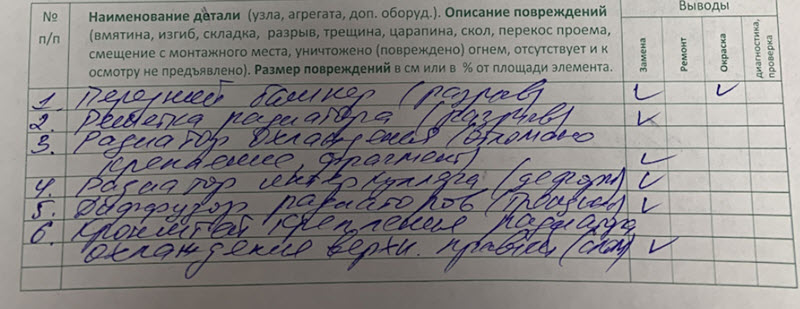 № п/п
Наименование детали (узла, агрегата, доп. оборуд.). Описание повреждений
(вмятина, изгиб, складка, разрыв, трещина, царапина, скол, перекос проема,
смещение с монтажного места, уничтожено (повреждено) огнем, отсутствует и к
осмотру не предъявлено). Размер повреждений в см или в % от площади элемента.
Выводы
Замена
Ремонт
Окраска
диагностика, проверка
1. Передний бампер (разрыв) ✓ ✓
2. Решетка радиатора (разрыв) ✓
3. Радиатор охлаждения (отломано
крепление, фрагмент) ✓
4. Радиатор интеркулера (деформ) ✓
5. Диффузор радиаторов ✓
6. Кронштейн крепления радиатора
охлаждения верхн. правый (слом) ✓